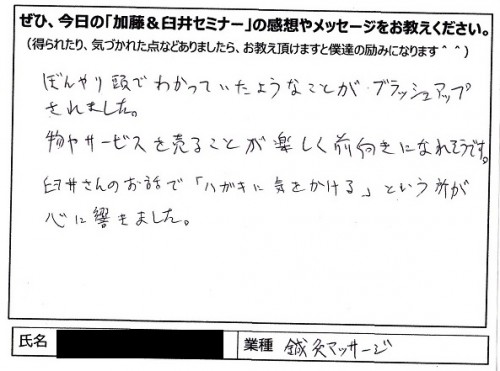 ぜひ、今日の「加藤＆臼井セミナー」の感想やメッセージをお教えください。
（得られたり、気づかれた点などありましたら、お教え頂けますと僕達の励みになります＾＾）
ぼんやり頭でわかっていたようなことが ブラッシュアップ
されました。
物やサービスを売ることが楽しく前向きになれそうです。
臼井さんのお話で「ハガキに気をかける」という所が
心に響きました。
氏名
業種 鍼灸マッサージ